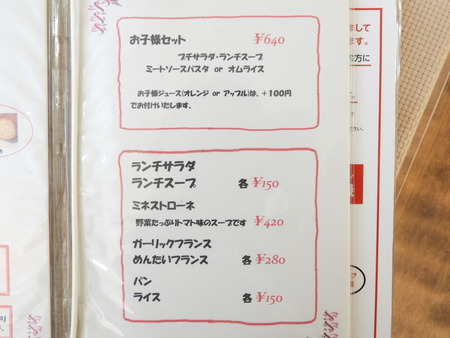 お子様セット ¥640
プチサラダ・ランチスープ
ミートソースパスタ or オムライス
お子様ジュース(オレンジ or アップル)は、+100円
でお付けいたします。
ランチサラダ
ランチスープ 各 ¥150
ミネストローネ
野菜たっぷりトマト味のスープです ¥420
ガーリックフランス
めんたいフランス 各 ¥280
パン
ライス 各 ¥150
まして
ます。
の方に